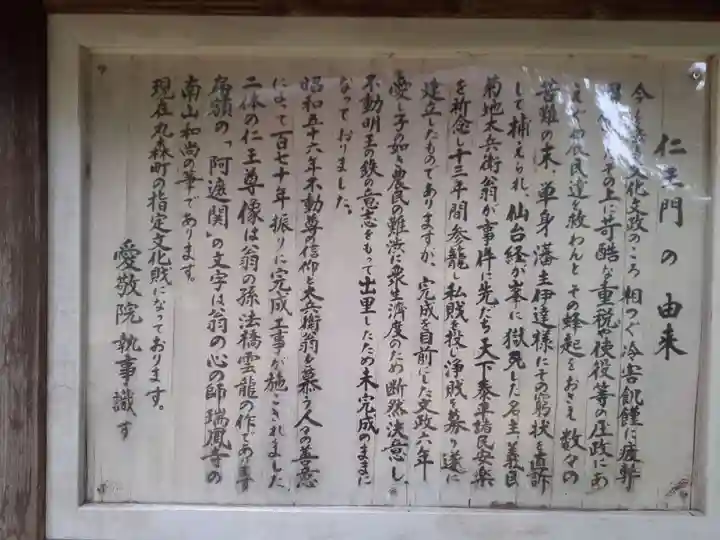 仁王門の由来
今を 文化文政のころ 相つぐ冷害飢饉に疲弊
その上に苛酷な重税や使役等の圧政にあ
えぐ 農民達を救わんと その蜂起をおさえ 数々の
苦難の末、単身藩主伊達様にその窮状を直訴
して捕えられ、仙台経が峯に獄死した名主義民
菊地太兵衛翁が事件に先だち 天下泰平諸民安楽
を祈念し十三年間参籠し 私財を投じ浄財を募り遂に
建立したものでありますが、完成を目前にした文政六年
愛し子の如き農民の難渋に衆生済度のため断然決意し
不動明王の鉄の意志をもって出里したため未完成のままに
なっておりました。
昭和五十六年不動尊の信仰と太兵衛翁を慕う人々の善意
によって百七十年振りに完成工事が施こされました
二体の仁王尊像は翁の孫法橋雲龍の作であります
扁額の「阿遮関」の文字は翁の心の師瑞鳳寺の
南山和尚の筆であります。
現在丸森町の指定文化財になっております。
愛敬院執事識す